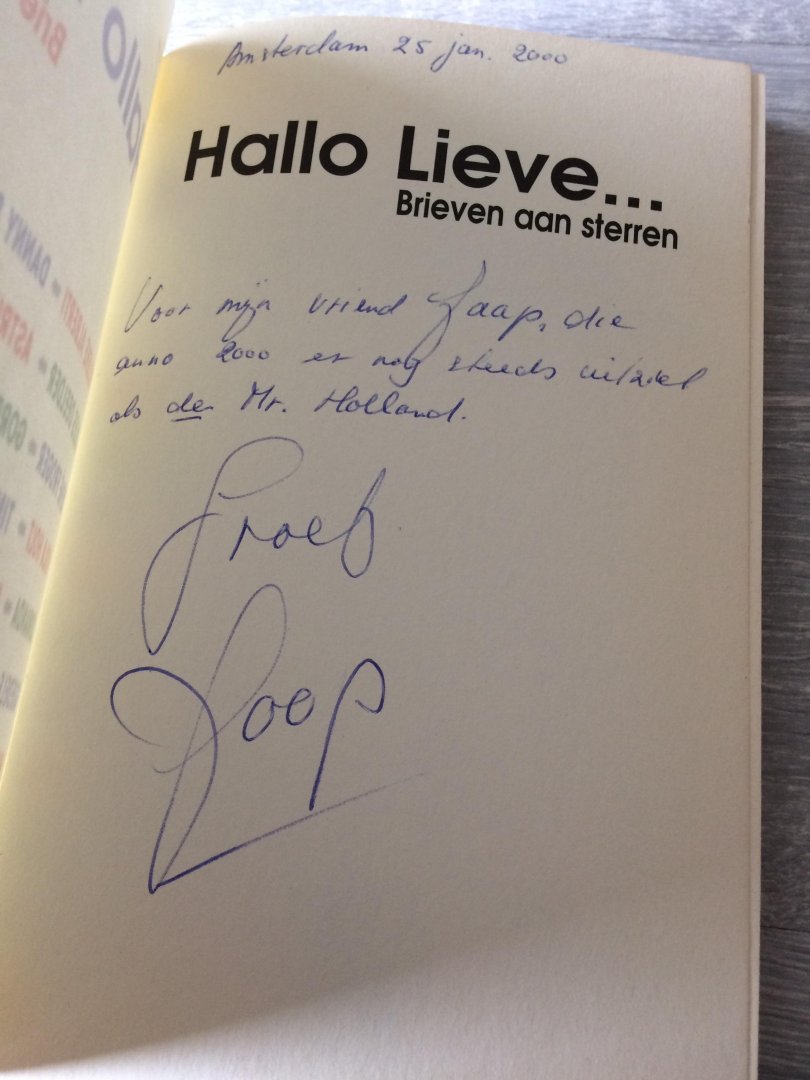 Amsterdam 25 jan. 2000
Hallo Lieve...
Brieven aan sterren
Voor mijn vriend Jaap, die
anno 2000 er nog steeds uitziet
als de Mr. Holland.
Groet
Joop
DANNY